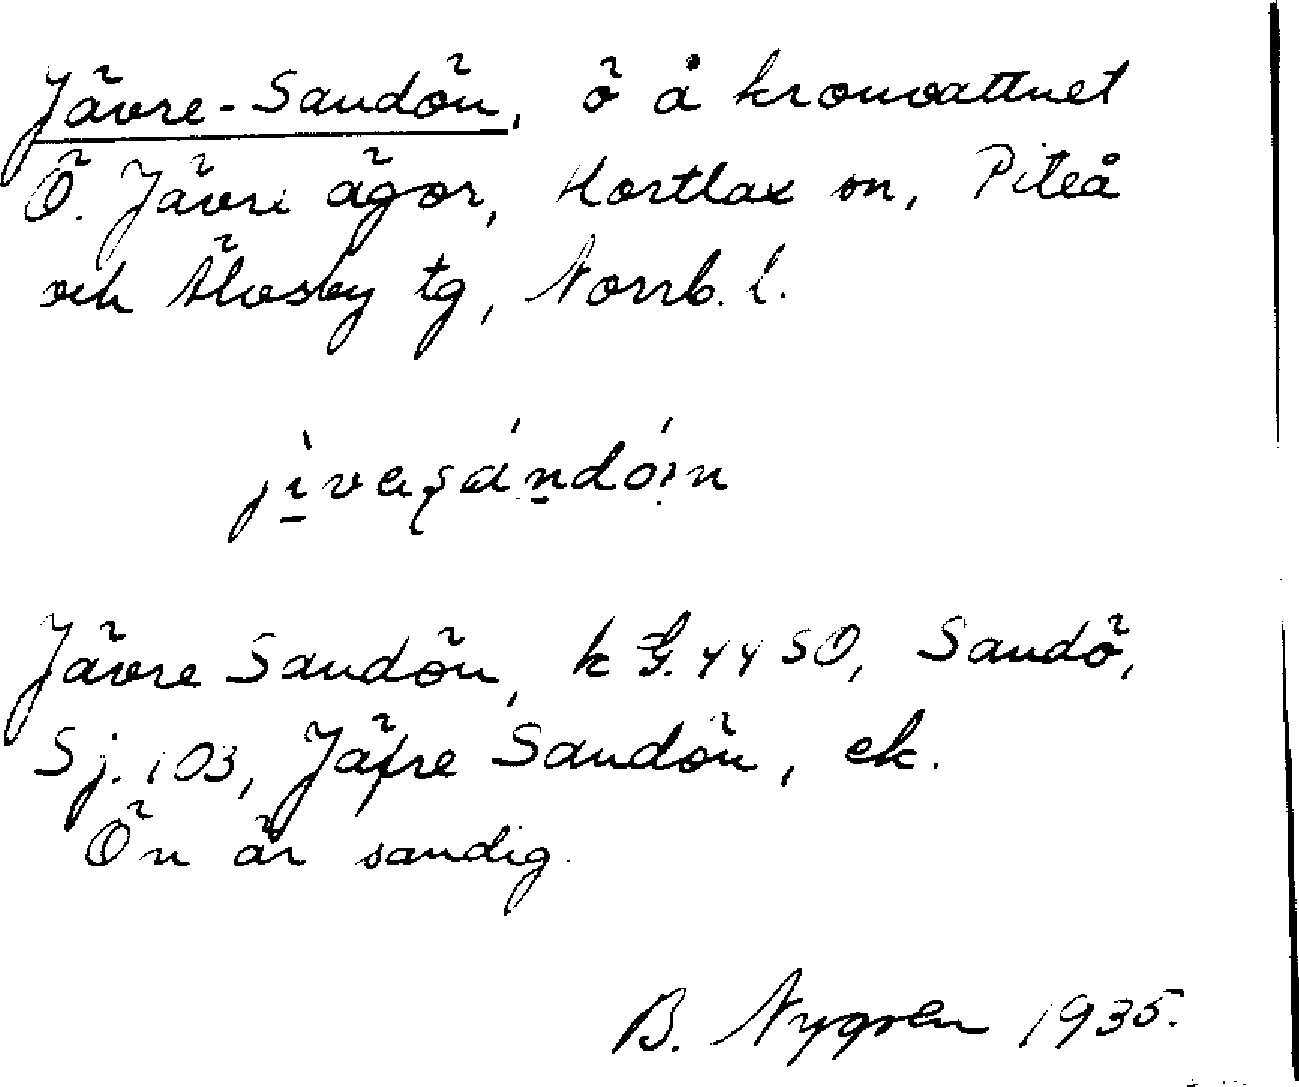 Jävre-Sandön, ö å kronovattnet
Ö. Jävre ägor, Hortlax sn, Piteå
och Älvsby tg, Norrb. l.
jìvaʂándóin
Jävre Sandön, k G. 4450, Sandö,
Sj. 103, Jäfre Sandön, ek.
Ön är sandig.
B. Nygren 1935.